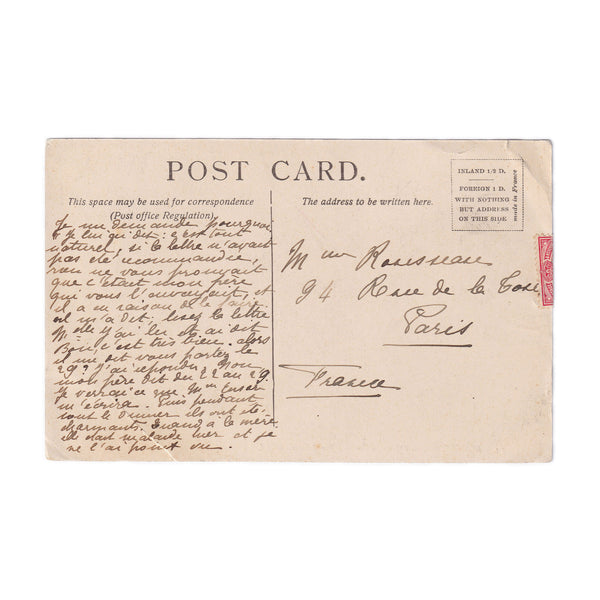 POST CARD.
This space may be used for correspondence
(Post office Regulation)
The address to be written here.
INLAND 1/2 D.
FOREIGN 1 D.
WITH NOTHING
BUT ADDRESS
ON THIS SIDE
made in France
Je me demande pourquoi
lui qu'dit: c'est tout
naturel, si la lettre n'avait
pas été recommandée,
rien ne vous prouvait
que c'était mon père
qui vous l'envoyait, et
il a eu raison de le faire
il m'a dit: lisez la lettre
Melle j'ai lu et ai dit
Bon, c'est très bien. alors
il me dit vous partez le
29? J'ai répondu, Non
mon père dit du 22 au 29.
Je verrai ce que Mme
m'écrira. Puis pendant
tout le dinner ils ont été
charmants. Quand à la mère
elle était malade hier et je
ne l'ai point vu.
Mme Rousseau
94 Rue de la
Paris
France